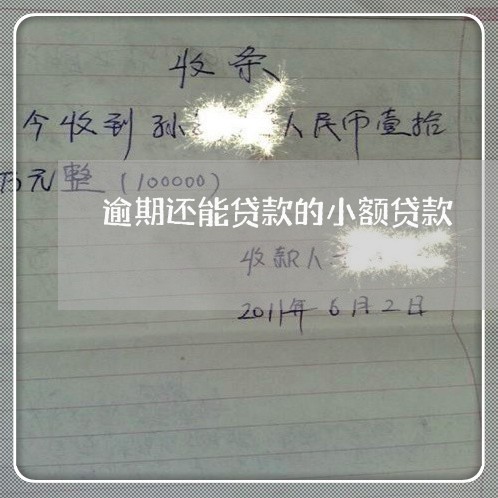 收条
今收到孙 人民币壹拾
万元整（100000）
逾期还能贷款的小额贷款
收款人
2011年6月2日